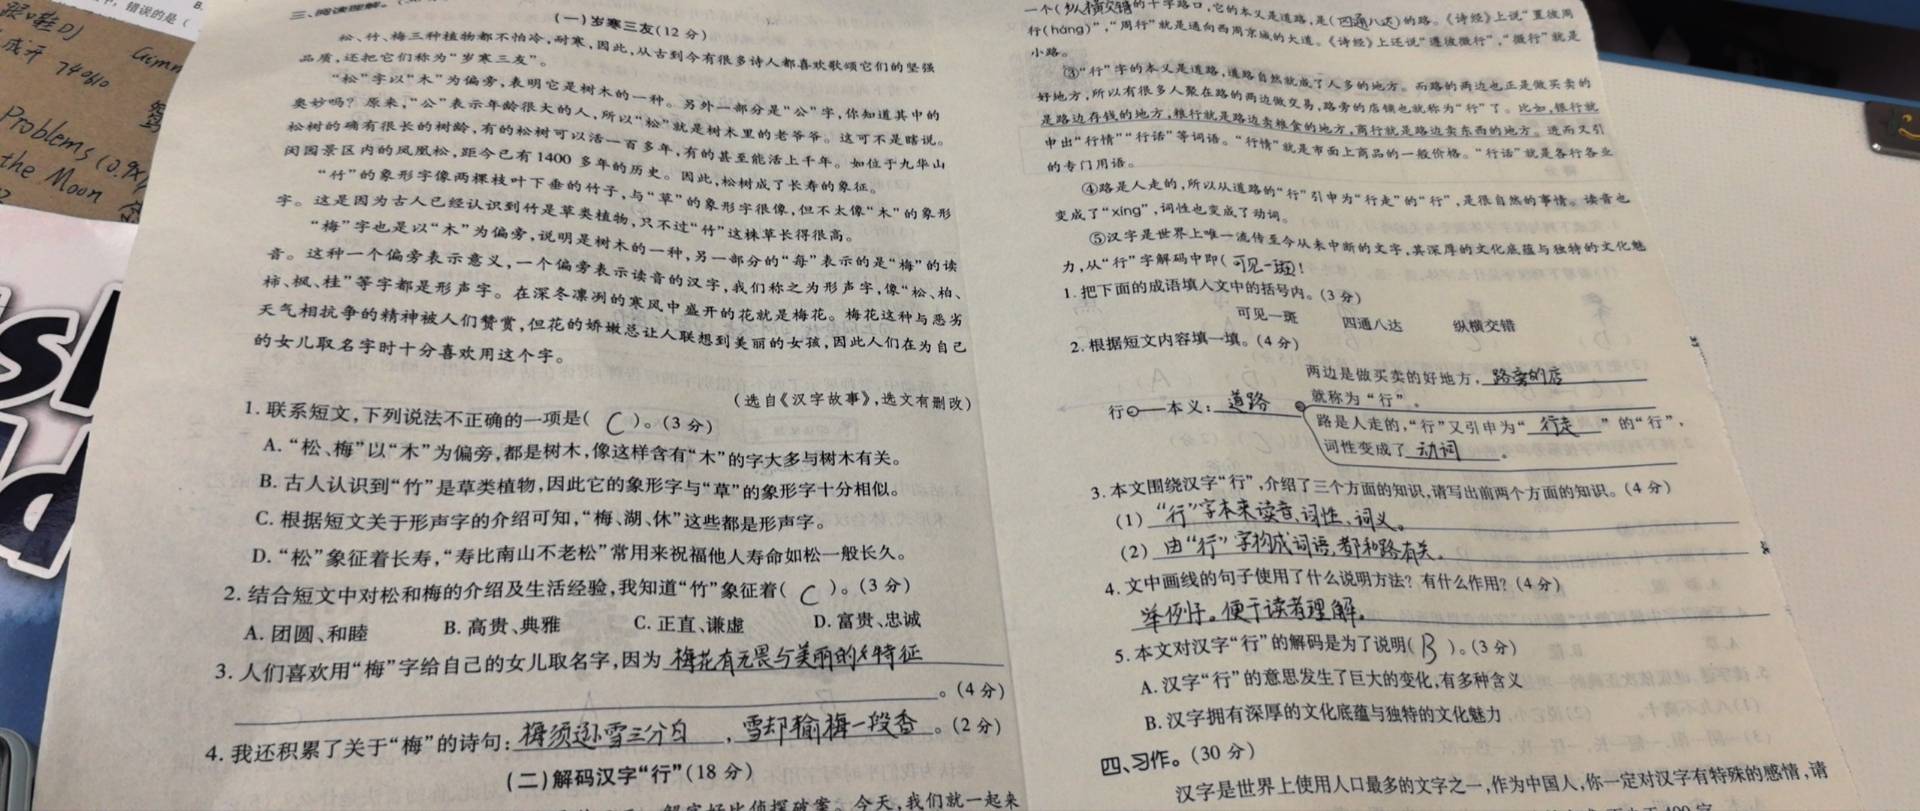 错误的是（
成开
74%
Problems (0.9
the Moon
三、阅读理解。
（一）岁寒三友（12 分）
松、竹、梅三种植物都不怕冷，耐寒，因此，从古到今有很多诗人都喜欢歌颂它们的坚强
品质，还把它们称为“岁寒三友”。
“松”字以“木”为偏旁，表明它是树木的一种。另外一部分是“公”字，你知道其中的
奥妙吗？原来，“公”表示年龄很大的人，所以“松”就是树木里的老爷爷。这可不是瞎说。
松树的确有很长的树龄，有的松树可以活一百多年，有的甚至能活上千年。如位于九华山
闵园景区内的凤凰松，距今已有 1400 多年的历史。因此，松树成了长寿的象征。
“竹”的象形字像两棵枝叶下垂的竹子，与“草”的象形字很像，但不太像“木”的象形
字。这是因为古人已经认识到竹是草类植物，只不过“竹”这株草长得很高。
“梅”字也是以“木”为偏旁，说明是树木的一种，另一部分的“每”表示的是“梅”的读
音。这种一个偏旁表示意义，一个偏旁表示读音的汉字，我们称之为形声字，像“松、柏、
柿、枫、桂”等字都是形声字。在深冬凛冽的寒风中盛开的花就是梅花。梅花这种与恶劣
天气相抗争的精神被人们赞赏，但花的娇嫩总让人联想到美丽的女孩，因此人们在为自己
的女儿取名字时十分喜欢用这个字。
（选自《汉字故事》，选文有删改）
1. 联系短文，下列说法不正确的一项是（ C ）。（3 分）
A. “松、梅”以“木”为偏旁，都是树木，像这样含有“木”的字大多与树木有关。
B. 古人认识到“竹”是草类植物，因此它的象形字与“草”的象形字十分相似。
C. 根据短文关于形声字的介绍可知，“梅、湖、休”这些都是形声字。
D. “松”象征着长寿，“寿比南山不老松”常用来祝福他人寿命如松一般长久。
2. 结合短文中对松和梅的介绍及生活经验，我知道“竹”象征着（ C ）。（3 分）
A. 团圆、和睦 B. 高贵、典雅 C. 正直、谦虚 D. 富贵、忠诚
3. 人们喜欢用“梅”字给自己的女儿取名字，因为 梅花有无畏与美丽的特征
。（4 分）
4. 我还积累了关于“梅”的诗句：梅须逊雪三分白，雪却输梅一段香。（2 分）
（二）解码汉字“行”（18 分）
解字好比侦探破案。今天，我们就一起来
一个（纵横交错的十字路口，它的本义是道路，是（四通八达）的路。《诗经》上说“置彼周
行（háng）”，“周行”就是通向西周京城的大道。《诗经》上还说“遵彼微行”，“微行”就是
小路。
③“行”字的本义是道路，道路自然就成了人多的地方。而路的两边也正是做买卖的
好地方，所以有很多人聚在路的两边做交易，路旁的店铺也就称为“行”了。比如，银行就
是路边存钱的地方，粮行就是路边卖粮食的地方，商行就是路边卖东西的地方。进而又引
申出“行情”“行话”等词语。“行情”就是市面上商品的一般价格。“行话”就是各行各业
的专门用语。
④路是人走的，所以从道路的“行”引申为“行走”的“行”，是很自然的事情。读音也
变成了“xíng”，词性也变成了动词。
⑤汉字是世界上唯一流传至今从未中断的文字，其深厚的文化底蕴与独特的文化魅
力，从“行”字解码中即（可见一斑！
1. 把下面的成语填入文中的括号内。（3 分）
可见一斑 四通八达 纵横交错
2. 根据短文内容填一填。（4 分）
两边是做买卖的好地方，路旁的店
就称为“行”。
行 本义：道路
路是人走的，“行”又引申为“行走”的“行”，
词性变成了 动词 。
3. 本文围绕汉字“行”，介绍了三个方面的知识，请写出前两个方面的知识。（4 分）
（1）“行”字本来读音、词性、词义。
（2）由“行”字构成词语，都和路有关。
4. 文中画线的句子使用了什么说明方法？有什么作用？（4 分）
举例子。便于读者理解。
5. 本文对汉字“行”的解码是为了说明（ B ）。（3 分）
A. 汉字“行”的意思发生了巨大的变化，有多种含义
B. 汉字拥有深厚的文化底蕴与独特的文化魅力
四、习作。（30 分）
汉字是世界上使用人口最多的文字之一，作为中国人，你一定对汉字有特殊的感情，请